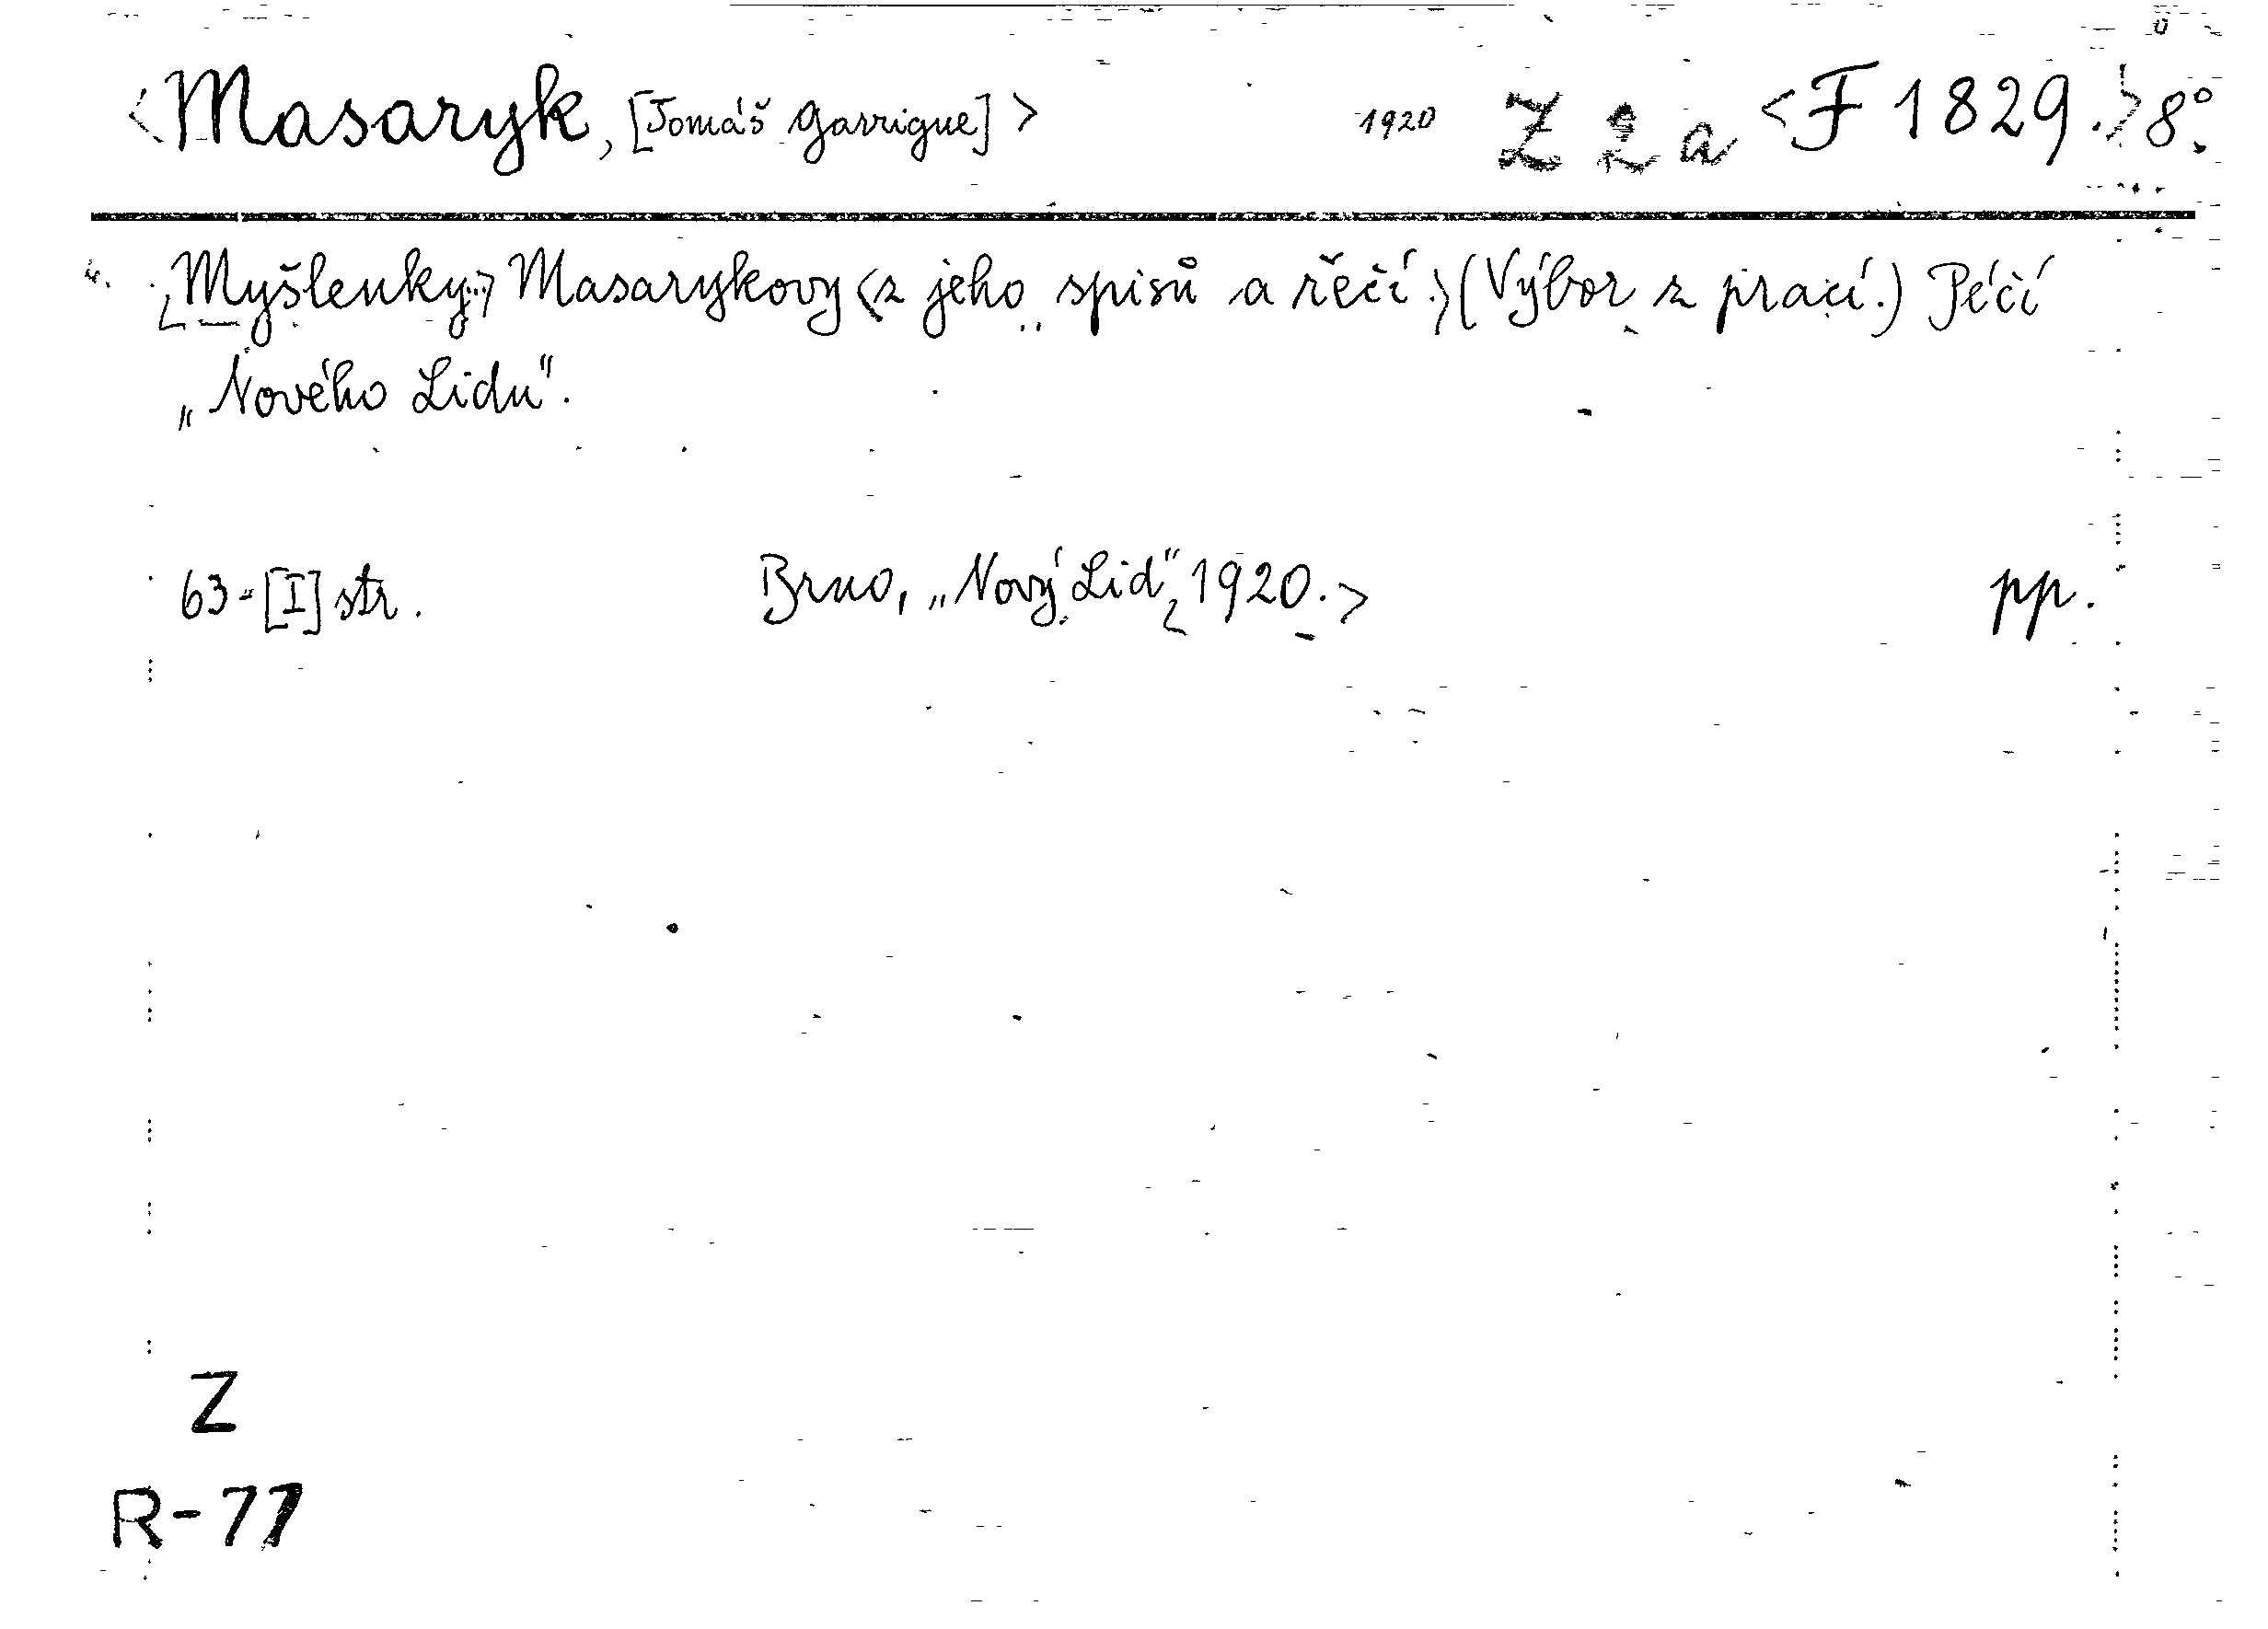 <Masaryk, [Tomáš Garrigue]> 1920 Z 2 a <F 1829.> 8°.
<Myšlenky> Masarykovy <z jeho spisů a řečí.> (Výbor z prací.) Péčí
„Nového Lidu".
63-[I] str. Brno, „Nový Lid", 1920.> pp.
Z
R-77